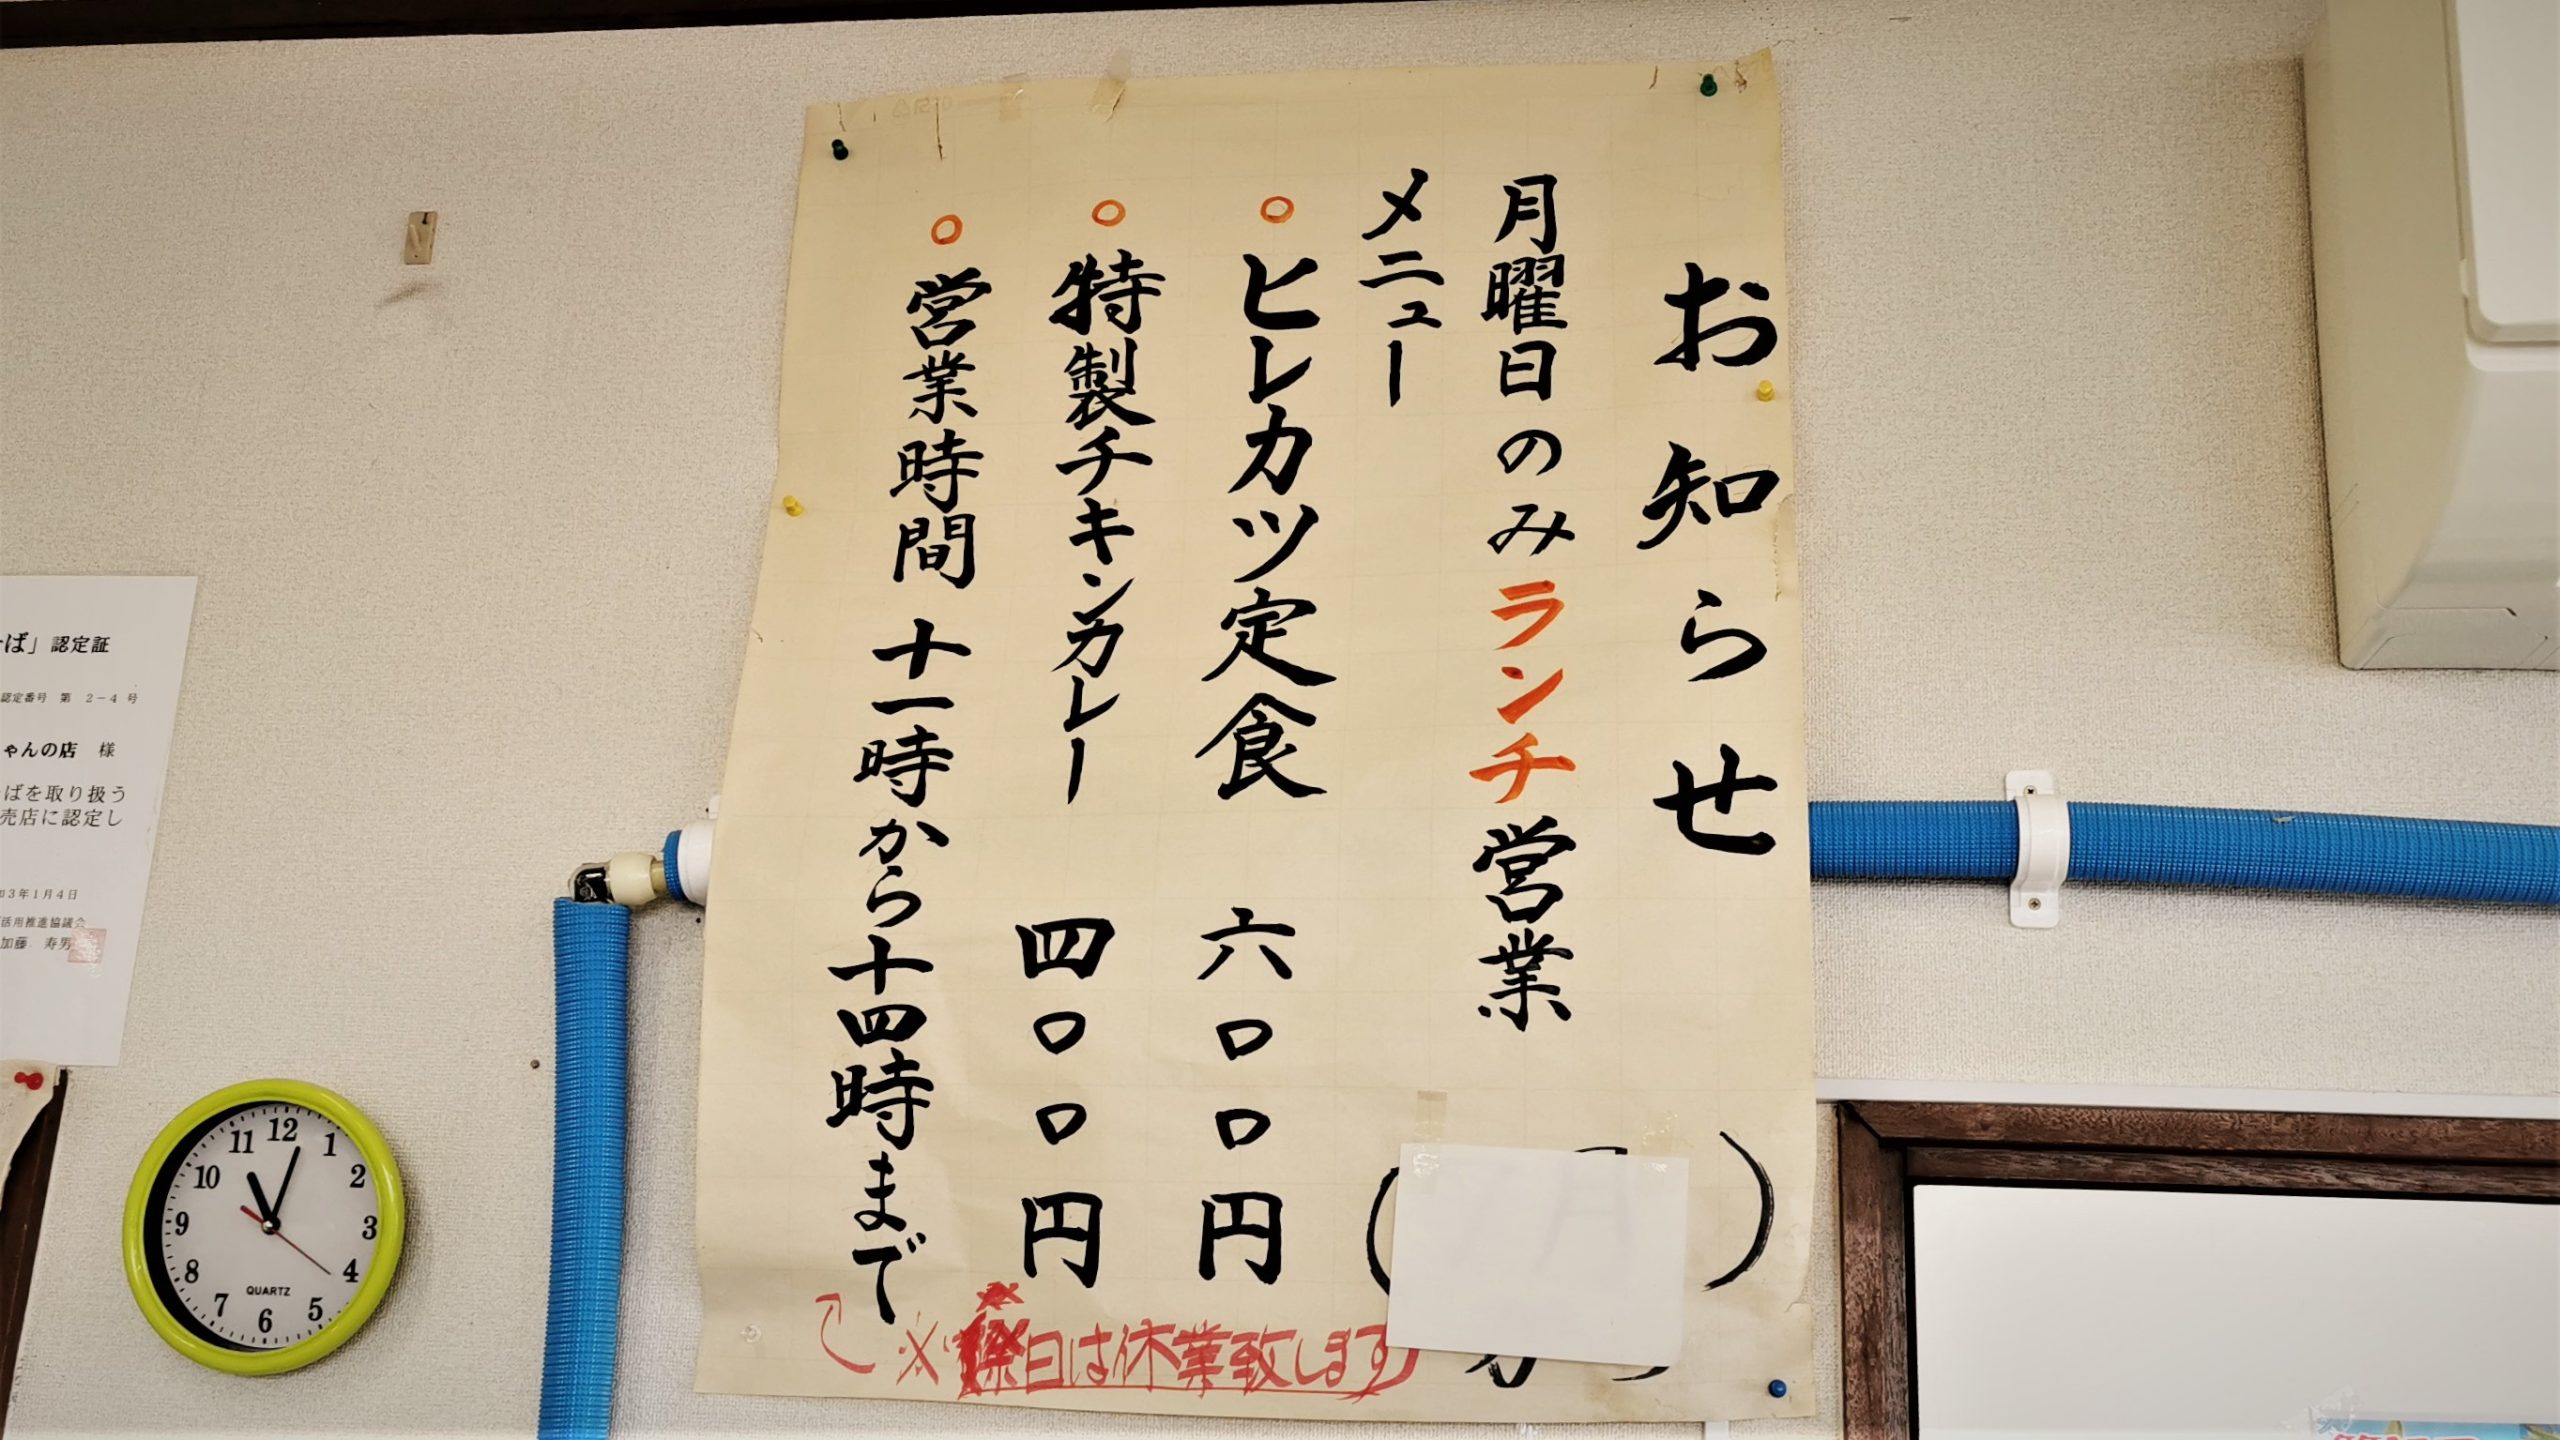 お知らせ
月曜日のみランチ営業
メニュー
○ヒレカツ定食 六〇〇円
○特製チキンカレー 四〇〇円
○営業時間 十一時から十四時まで
※祭日は休業致します
ば」認定証
認定番号 第 2-4 号
ゃんの店 様
ばを取り扱う
売店に認定し
3年1月4日
活用推進協議会
加藤 寿男
12
1
2
3
4
5
6
7
8
9
10
11
QUARTZ